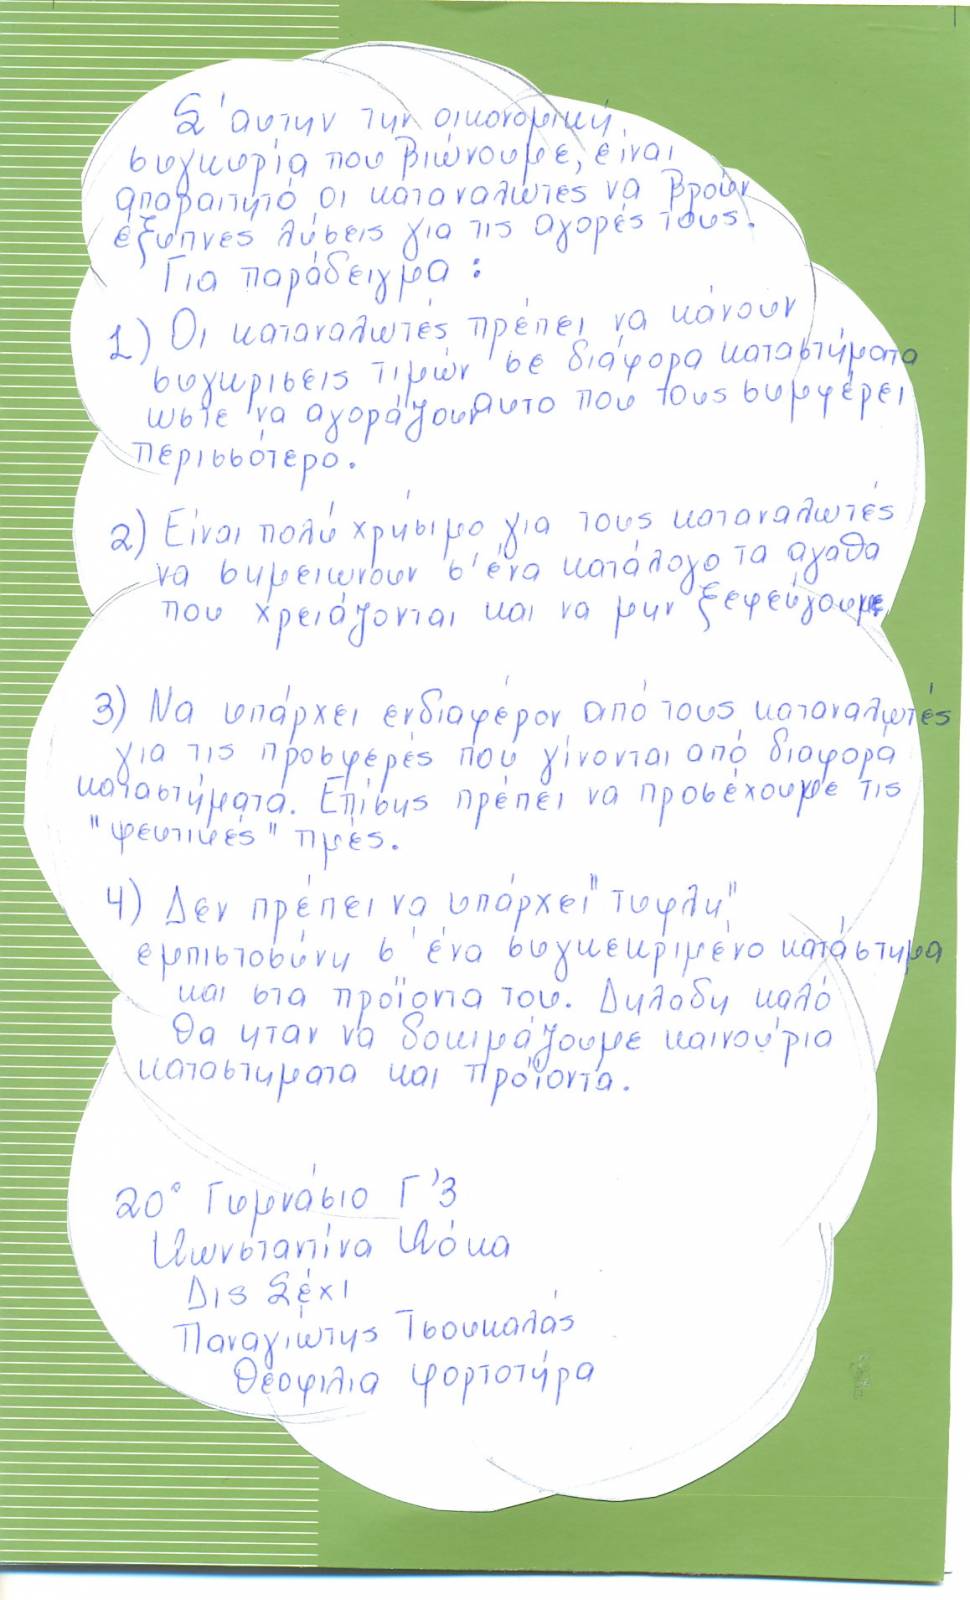 Σ'αυτην την οικονομική
συγκυρία που βιώνουμε, είναι
απαραιτητό οι καταναλωτές να βρούν
έξυπνες λύσεις για τις αγορές τους.
Για παράδειγμα :
1) Οι καταναλωτές πρέπει να κάνουν
συγκρισεις τιμών σε διάφορα καταστήματα
ωστε να αγοράζουν αυτο που τους συμφέρει
περισσότερο.
2) Είναι πολύ χρήσιμο για τους καταναλωτές
να σημειωνουν σ'ένα κατάλογο τα αγαθα
που χρειάζονται και να μην ξεφεύγουμε
3) Να υπάρχει ενδιαφέρον από τους καταναλωτές
για τις προσφερές που γίνονται από διαφορά
καταστήματα. Επίσης πρέπει να προσέχουμε τις
"ψευτικές" τιμές.
4) Δεν πρέπει να υπάρχει "τυφλη"
εμπιστοσύνη σ'ένα συγκεκριμένο κατάστημα
και στα προϊοντα του. Δηλαδη καλό
θα ηταν να δοκιμάζουμε καινούρια
καταστηματα και προϊοντα.
20° Γυμνάσιο Γ'3
Κωνσταντίνα Κόκα
Δις Σέχι
Παναγιώτης Τσουκαλάς
Θεοφιλια Φορτοτήρα